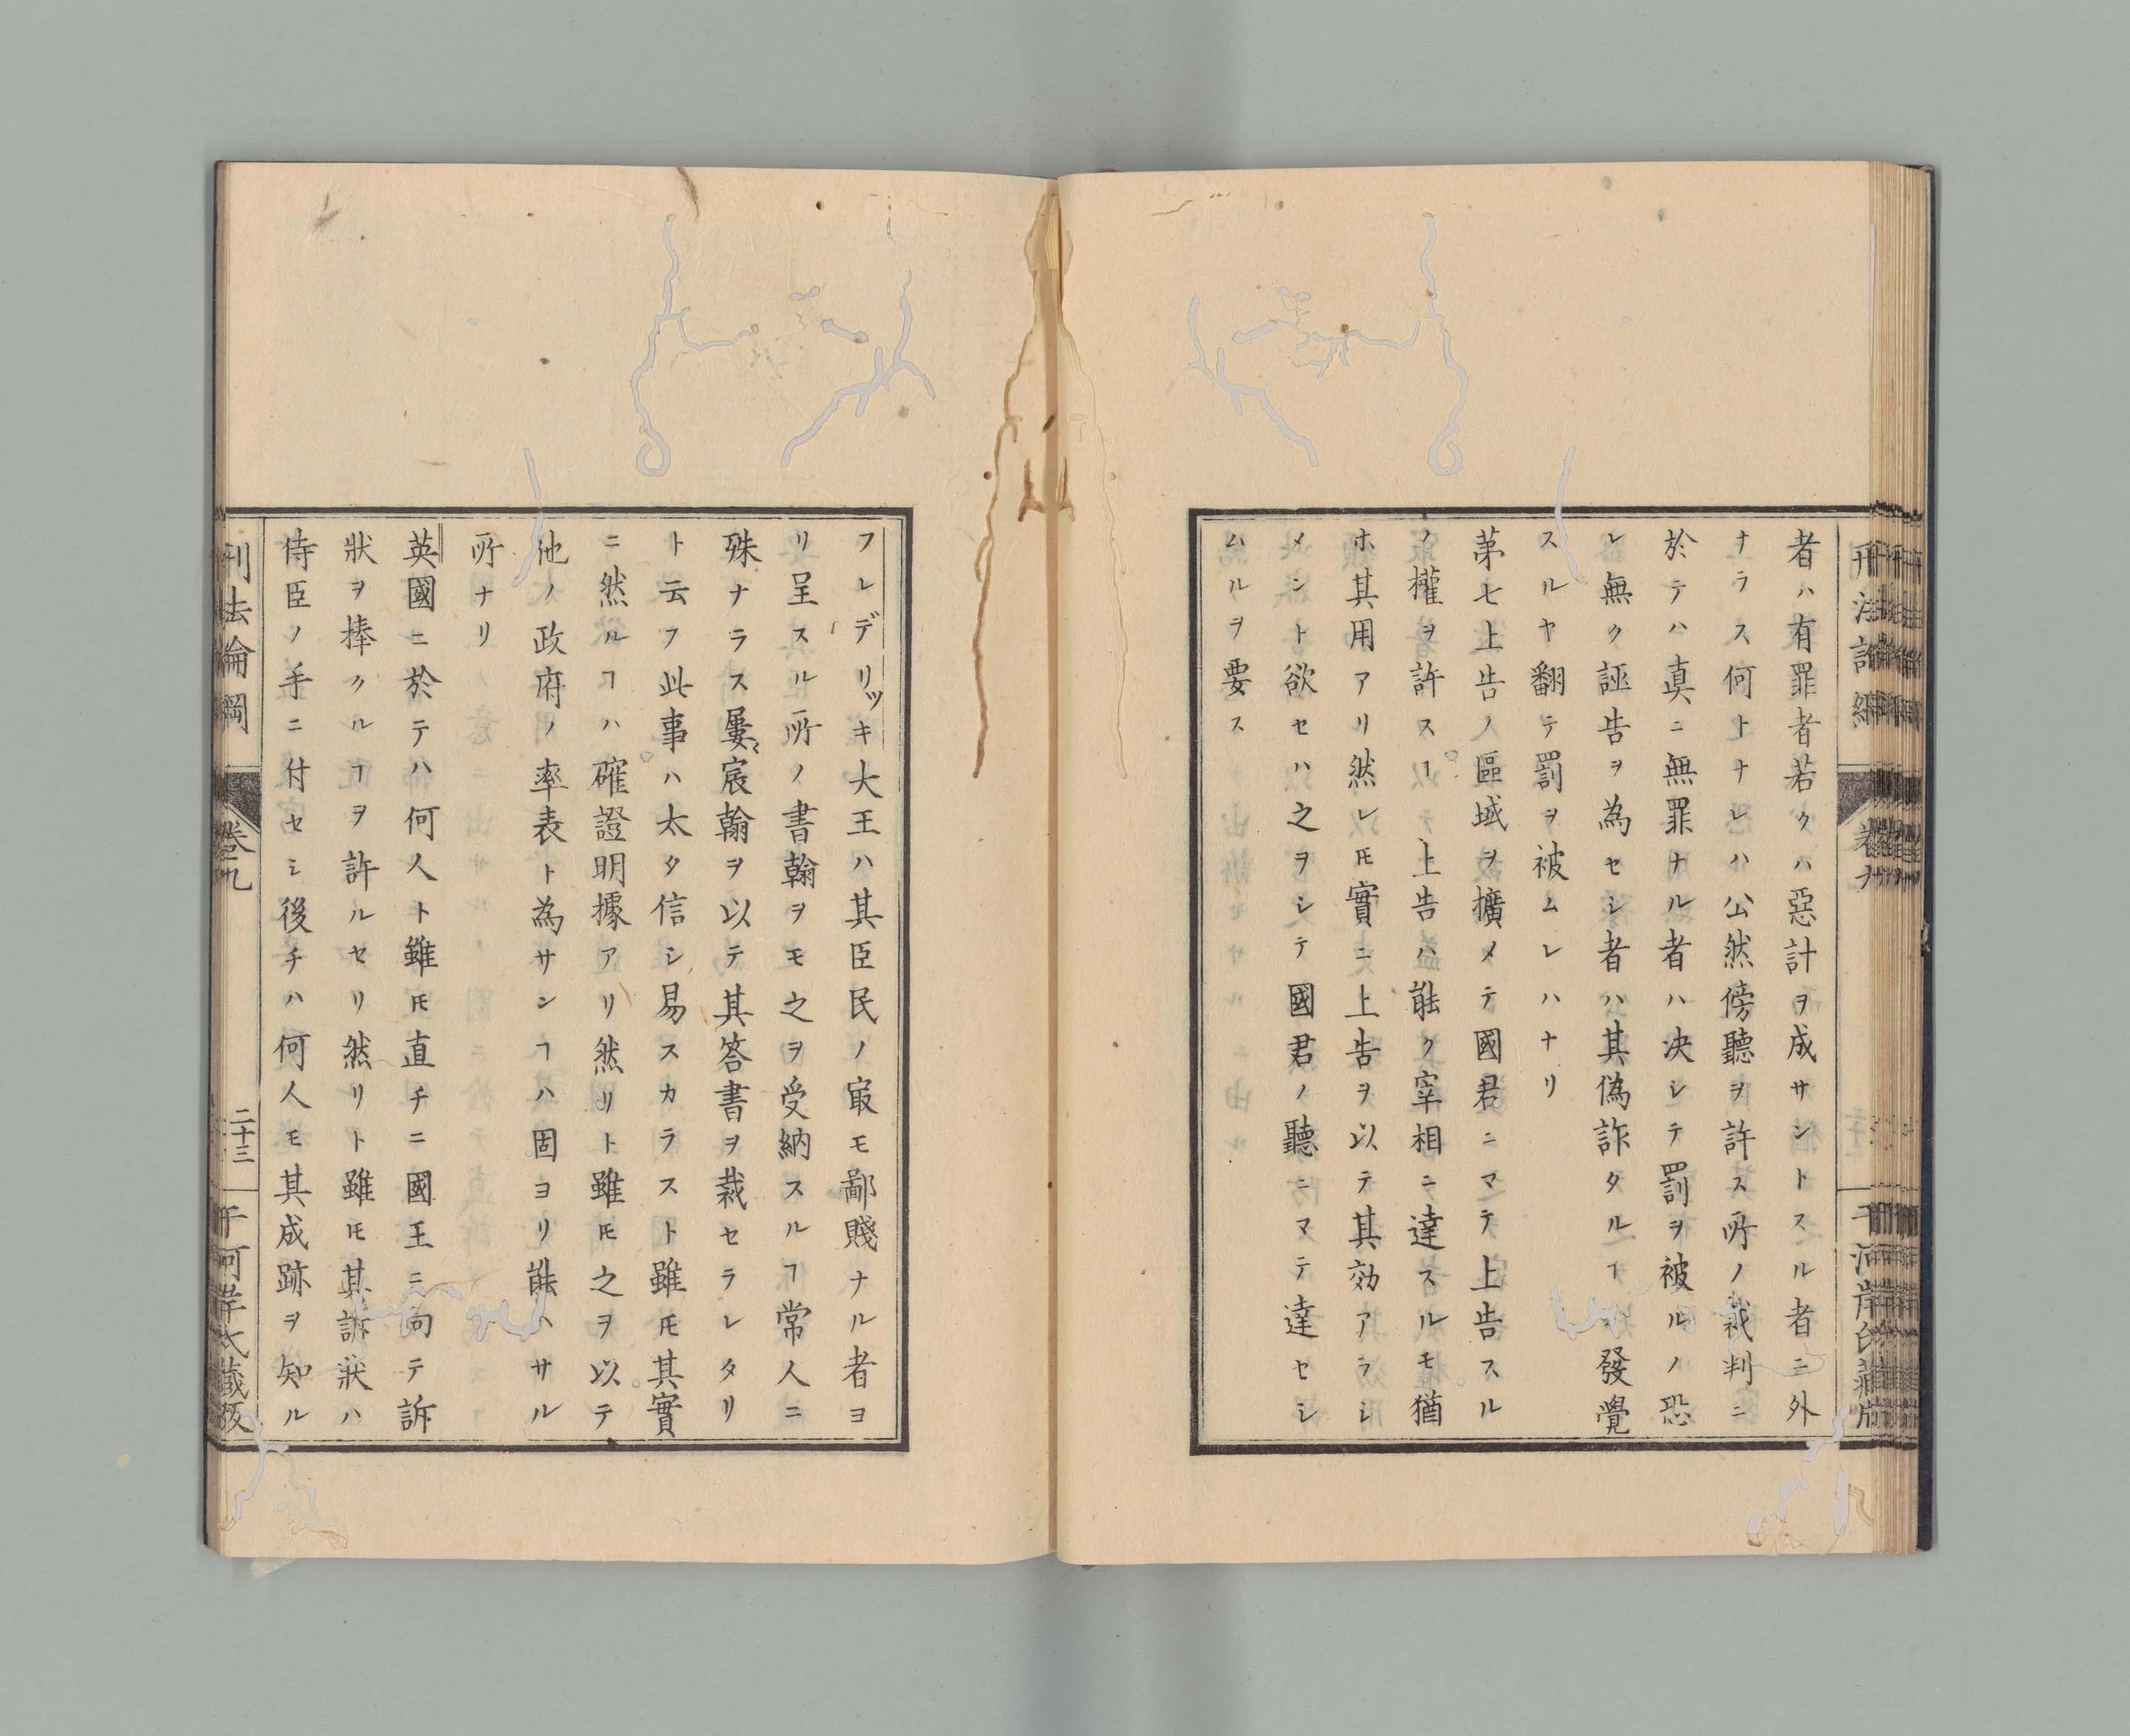 者ハ有罪者若クハ惡計ヲ成サントスル者ニ外
ナラス何トナレハ公然傍聽ヲ許ス所ノ裁判ニ
於テハ真ニ無罪ナル者ハ决シテ罰ヲ被ルノ恐
レ無ク誣告ヲ為セシ者ハ其偽詐タルヿ發覺
スルヤ翻テ罰ヲ被ムレハナリ
第七上告ノ區域ヲ擴メテ國君ニマテ上告スル
ノ權ヲ許スヿ 上告ハ能ク宰相ニ達スルモ猶
ホ其用アリ然レ𪜈實ニ上告ヲ以テ其効アラシ
メント欲セハ之ヲシテ國君ノ聽ニマテ達セシ
ムルヲ要ス
フレデリッキ大王ハ其臣民ノ㝡モ鄙賤ナル者ヨ
リ呈スル所ノ書翰ヲモ之ヲ受納スルヿ常人ニ
殊ナラス屢〻宸翰ヲ以テ其答書ヲ裁セラレタリ
ト云フ此事ハ太タ信シ易スカラスト雖𪜈其實
ニ然ルヿハ確證明據アリ然リト雖𪜈之ヲ以テ
他ノ政府ノ率表ト為サンヿハ固ヨリ能ハサル
所ナリ
英國ニ於テハ何人ト雖𪜈直チニ國王ニ向テ訴
狀ヲ捧クルヿヲ許ルセリ然リト雖𪜈其訴狀ハ
侍臣ノ手ニ付セシ後チハ何人モ其成跡ヲ知ル
刑法論綱
卷九
二十三
干河岸氏藏版